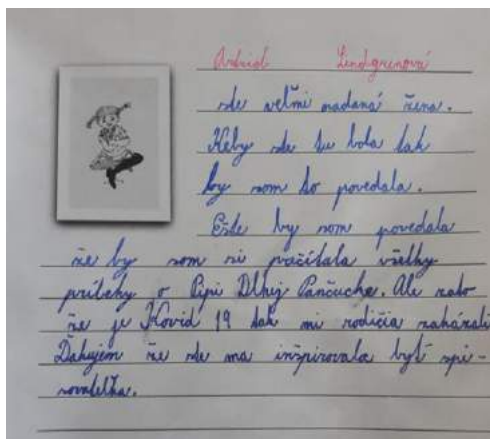 Astrid Lindgrenová
ste veľmi nadaná žena.
Keby ste tu bola tak
by som to povedala.
Ešte by som povedala
že by som si prečítala všetky
príbehy o Pipi Dlhej Pančuche. Ale zato
že je Kovid 19 tak mi rodičia zakázali
Ďakujem že ste ma inšpirovala byť spi-
sovateľka.